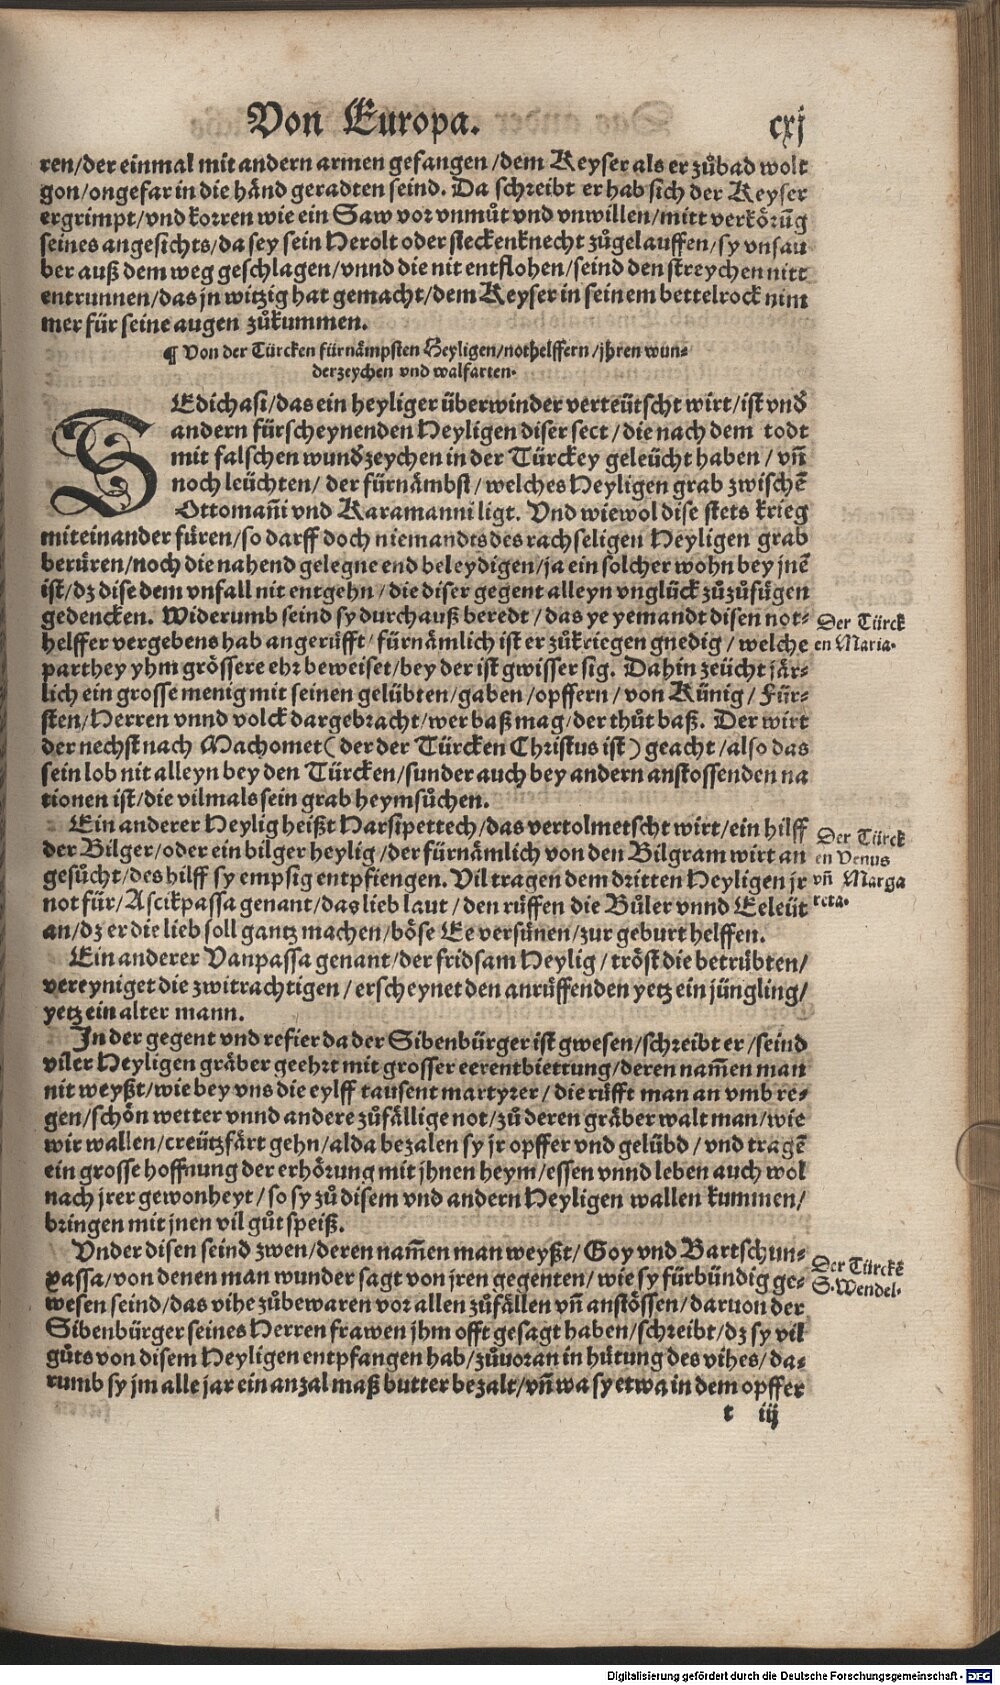 Von Europa. cxj
ren/der einmal mit andern armen gefangen/dem Keyser als er zůbad wolt
gon/ongefar in die händ geradten seind. Da schreibt er hab sich der Keyser
ergrimpt/vnd korren wie ein Saw vor vnmůt vnd vnwillen/mitt verkörūg
seines angesichts/da sey sein Herolt oder steckenknecht zůgelauffen/sy vnsau
ber auß dem weg geschlagen/vnnd die nit entflohen/seind den streychen nitt
entrunnen/das jn witzig hat gemacht/dem Keyser in seinem bettelrock nim
mer für seine augen zůkummen.
¶ Von der Türcken fürnämpsten Heyligen/nothelffern/jhren wun-
derzeychen vnd walfarten.
SEdichasi/das ein heyliger überwinder verteütscht wirt/ist vnđ
andern fürscheynenden Heyligen diser sect/die nach dem todt
mit falschen wunđzeychen in der Türckey geleücht haben/vñ
noch leüchten/der fürnämbst/welches Heyligen grab zwischē
Ottomañi vnd Karamanni ligt. Vnd wiewol dise stets krieg
miteinander füren/so darff doch niemandts des rachseligen Heyligen grab
berüren/noch die nahend gelegne end beleydigen/ja ein solcher wohn bey jnē
ist/dz dise dem vnfall nit entgehn/die diser gegent alleyn vnglück zůzůfügen
gedencken. Widerumb seind sy durchauß beredt/das ye yemandt disen not-
helffer vergebens hab angerüfft/fürnämlich ist er zůkriegen gnedig/welche
parthey yhm grössere ehr beweiset/bey der ist gwisser sig. Dahin zeücht jär-
lich ein grosse menig mit seinen gelübten/gaben/opffern/von Künig/Für-
sten/Herren vnnd volck dargebracht/wer baß mag/der thůt baß. Der wirt
der nechst nach Machomet(der der Türcken Christus ist)geacht/also das
sein lob nit alleyn bey den Türcken/sunder auch bey andern anstossenden na
tionen ist/die vilmal sein grab heymsůchen.
Der Türck
en Maria.
Ein anderer Heylig heißt Harsipettech/das vertolmetscht wirt/ein hilff
der Bilger/oder ein bilger heylig/der fürnämlich von den Bilgram wirt an
gesůcht/des hilff sy empsig entpfiengen. Vil tragen dem dritten Heyligen jr
not für/Ascikpassa genant/das lieb laut/den rüffen die Bůler vnnd Eeleüt
an/dz er die lieb soll gantz machen/böse Ee versünen/zur geburt helffen.
Der Türck
en Venus
vñ Marga
reta.
Ein anderer Vanpassa genant/der fridsam Heylig/tröst die betrübten/
vereyniget die zwitrachtigen/erscheynet den anrüffenden yetz ein jüngling/
yetz ein alter mann.
In der gegent vnd refier da der Sibenbürger ist gwesen/schreibt er/seind
viler Heyligen gräber geehrt mit grosser eerentbiettung/deren nam̃en man
nit weyßt/wie bey vns die eylff tausent martyrer/die rüfft man an vmb re-
gen/schön wetter vnnd andere zůfällige not/zů deren gräber walt man/wie
wir wallen/creützfärt gehn/alda bezalen sy jr opffer vnd gelübd/vnd tragē
ein grosse hoffnung der erhörung mit jhnen heym/essen vnnd leben auch wol
nach jrer gewonheyt/so sy zů disem vnd andern Heyligen wallen kummen/
bringen mit jnen vil gůt speiß.
Vnder disen seind zwen/deren nam̃en man weyßt/Goy vnd Bartschun-
passa/von denen man wunder sagt von jren gegenten/wie sy fürbündig ge-
wesen seind/das vihe zůbewaren vor allen zůfällen vñ anstössen/daruon der
Sibenbürger seines Herren frawen jhm offt gesagt haben/schreibt/dz sy vil
gůts von disem Heyligen entpfangen hab/zůuoran in hütung des vihes/da-
rumb sy jm alle jar ein anzal maß butter bezalt/vñ wa sy etwa in dem opffer
Der Türckē
S. Wendel.
t iij
Digitalisierung gefördert durch die Deutsche Forschungsgemeinschaft - DFG